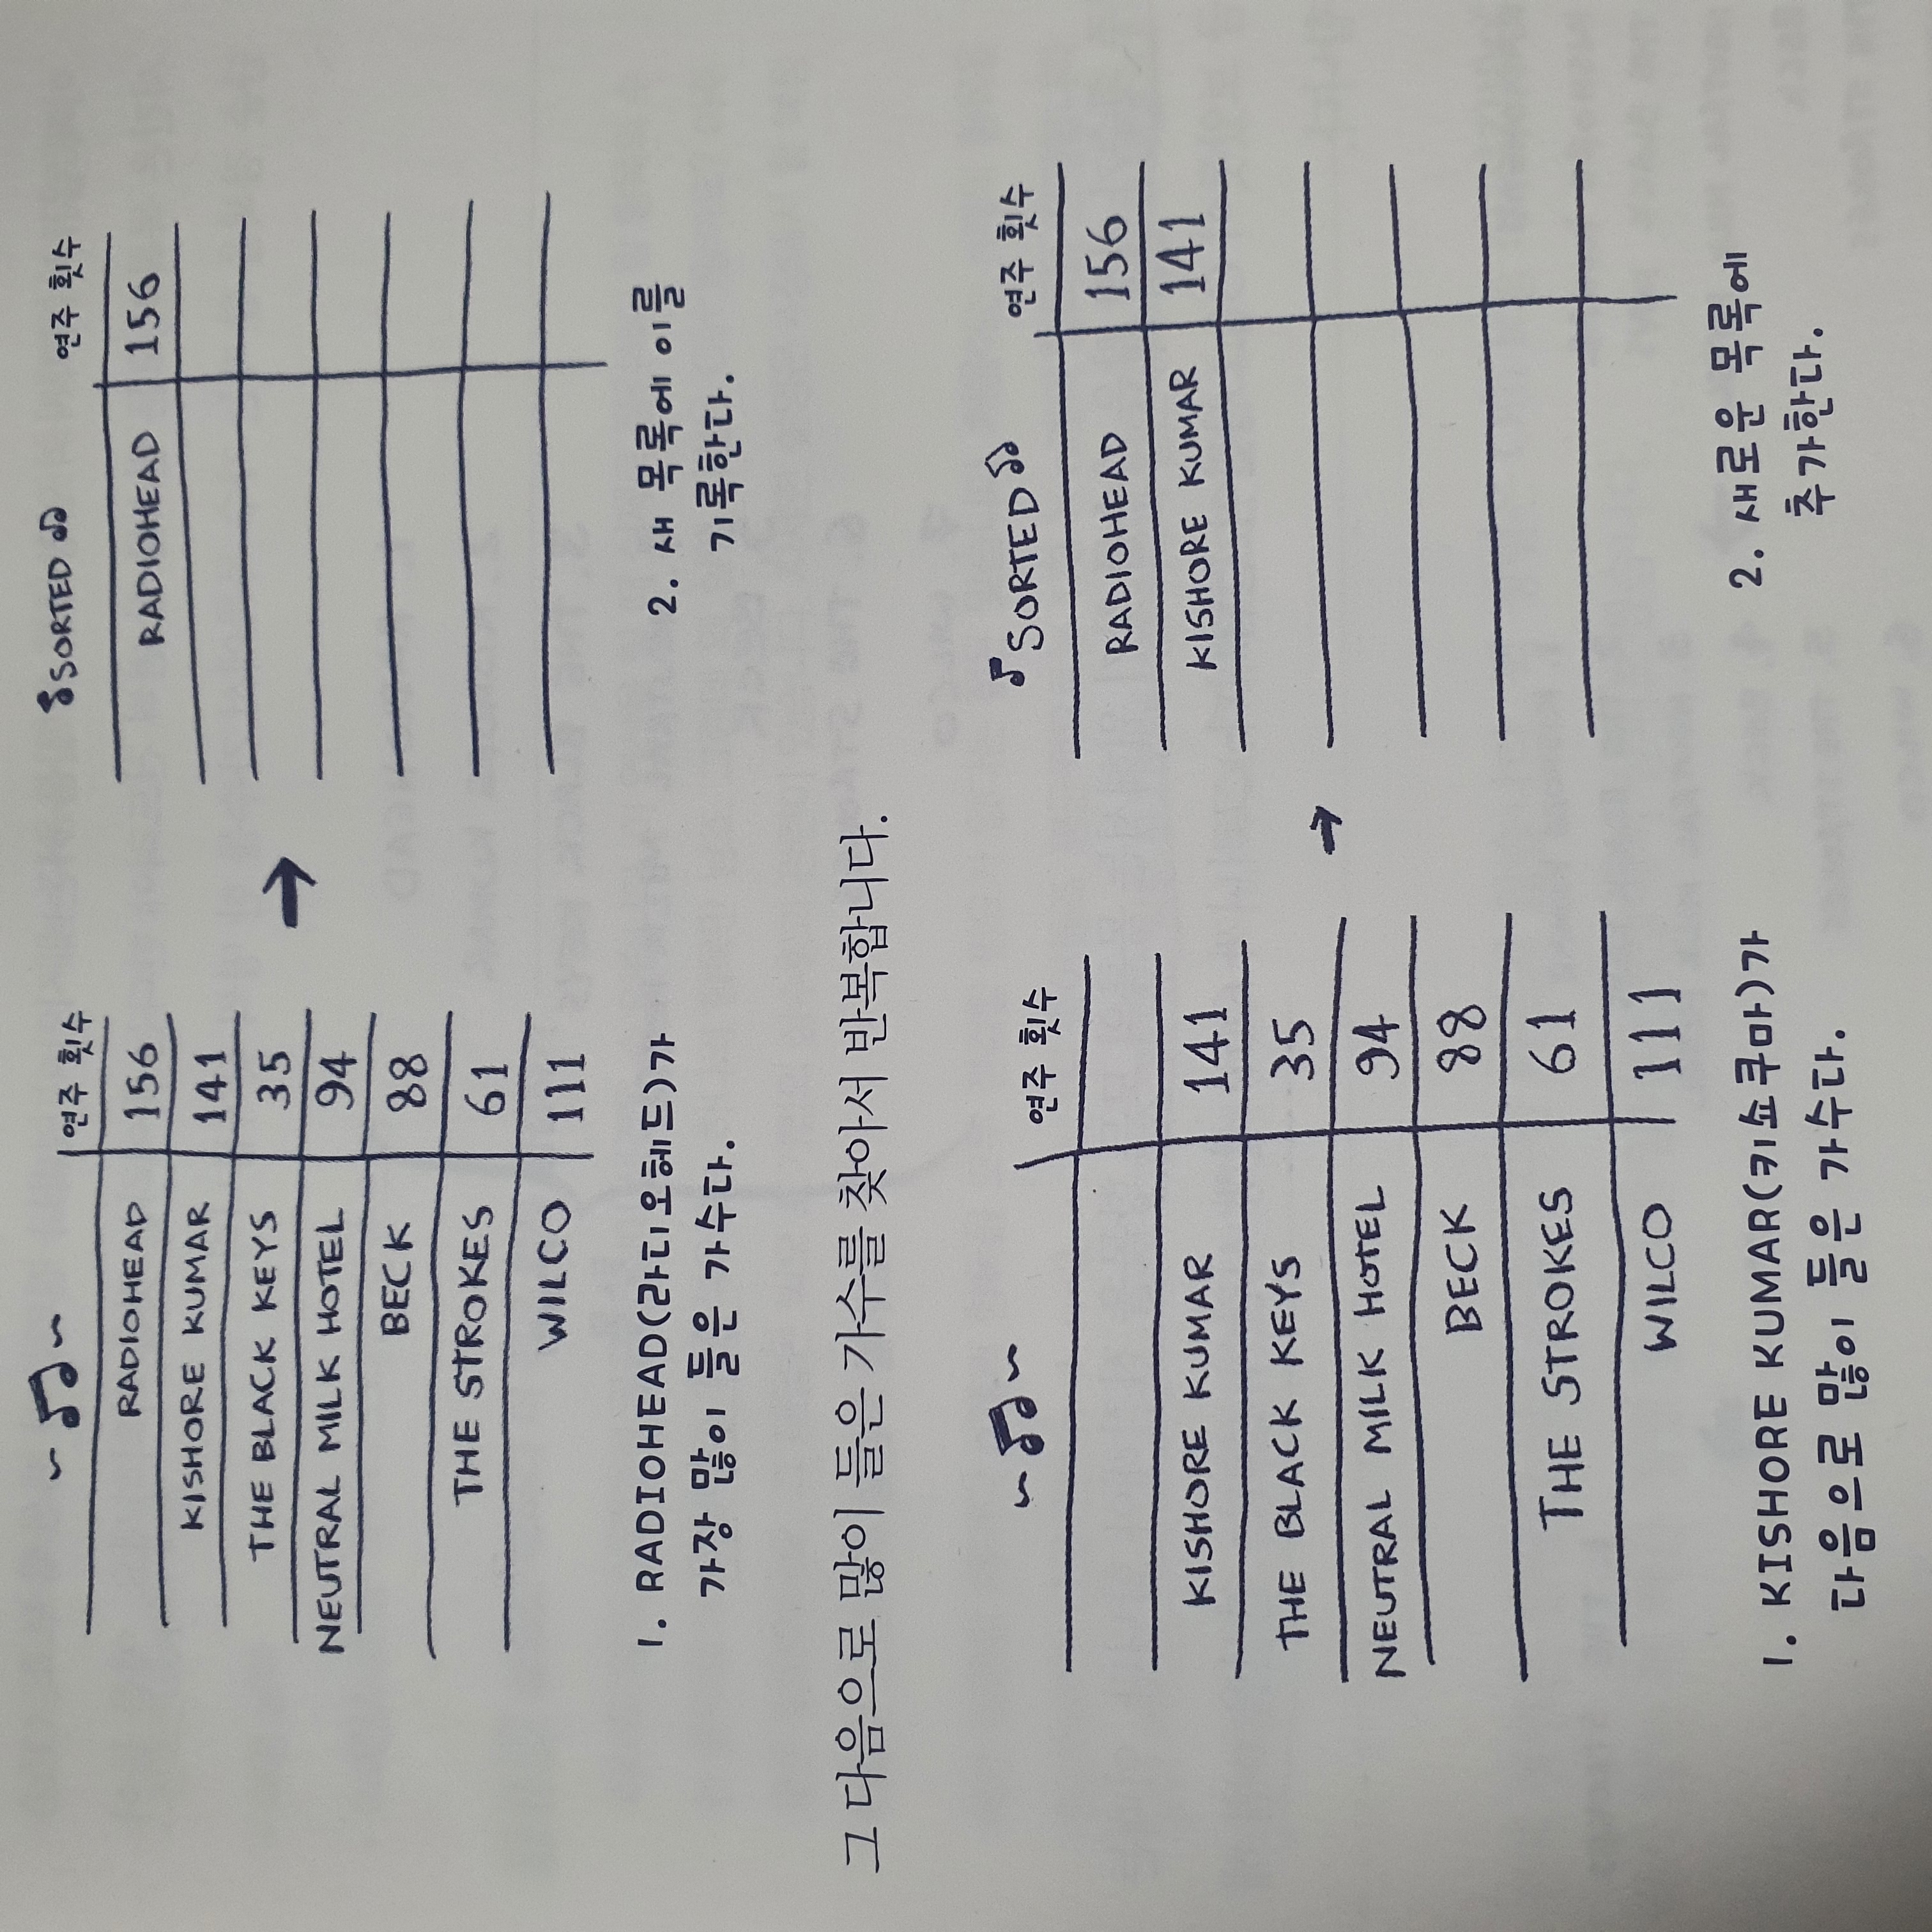 연주 횟수
RADIOHEAD 156
KISHORE KUMAR 141
THE BLACK KEYS 35
NEUTRAL MILK HOTEL 94
BECK 88
THE STROKES 61
WILCO 111
SORTED 연주 횟수
RADIOHEAD 156
1. RADIOHEAD(라디오헤드)가
가장 많이 들은 가수다.
2. 새 목록에 이를
기록한다.
그 다음으로 많이 들은 가수를 찾아서 반복합니다.
연주 횟수
KISHORE KUMAR 141
THE BLACK KEYS 35
NEUTRAL MILK HOTEL 94
BECK 88
THE STROKES 61
WILCO 111
SORTED 연주 횟수
RADIOHEAD 156
KISHORE KUMAR 141
1. KISHORE KUMAR(키쇼쿠마)가
다음으로 많이 들은 가수다.
2. 새로운 목록에
추가한다.